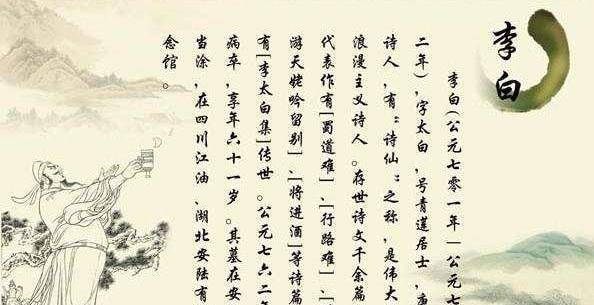 李白
李白(公元七零一年—公元七
二年)，字太白，号青莲居士，唐
诗人，有“诗仙”之称，是伟大
浪漫主义诗人。存世诗文千余篇
代表作有[蜀道难]、[行路难]、
游天姥吟留别]、[将进酒]等诗篇
有[李太白集]传世。公元七六二年
病卒，享年六十一岁。其墓在安
当涂，在四川江油、湖北安陆有
念馆。